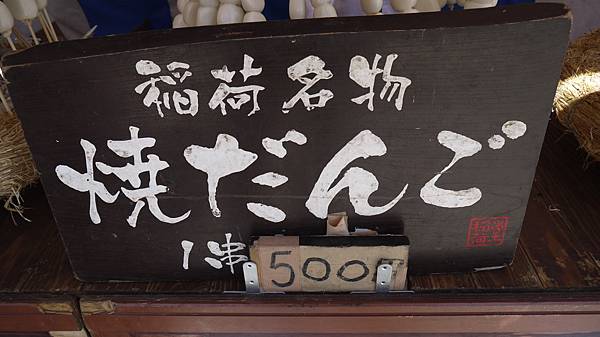 稲荷名物
焼だんご
1串 500円